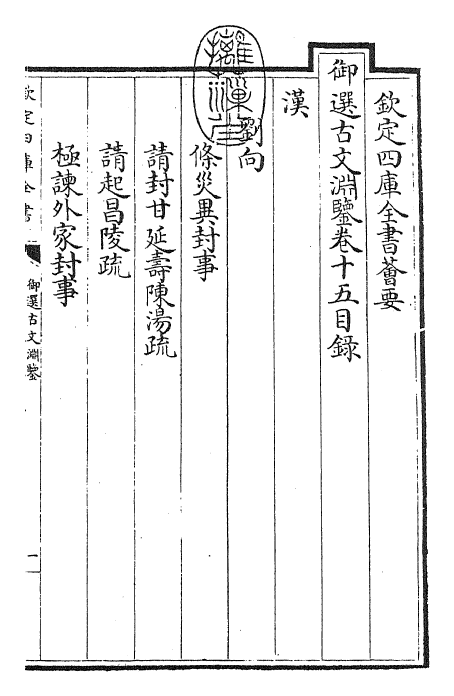 欽定四庫全書薈要
御選古文淵鑒卷十五目錄
漢
劉向
條災異封事
請封甘延壽陳湯疏
請起昌陵疏
極諫外家封事
欽定四庫全書
御選古文淵鑒
一